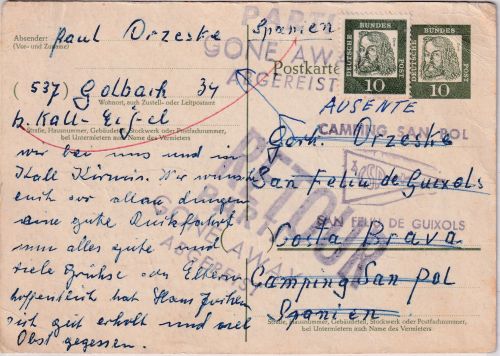 Absender:
Paul Drzeske
(Vor- und Zuname)
(537) Golbach 34
Wohnort, auch Zustell- oder Leitpostamt
b. Kall-Eifel
Straße, Hausnummer, Gebäudeteil, Stockwerk oder Postfachnummer,
bei Untermietern auch Name des Vermieters
wir bei uns und in
Kall Kirmis. Wir wünschen
euch vor allen dingen
eine gute Rückfahrt
nun alles gute und
viele Grüße der Eltern
hoffentlich hat Hans
sich gut erholt und viel
Obst gegessen.
Spanien
PARTI
GONE AWAY
ABGEREIST
Postkarte
DEUTSCHE BUNDESPOST
10
DEUTSCHE BUNDESPOST
10
AUSENTE
Gerh. Drzeske
CAMPING SAN POL
San Feliu de Guixols
SAN FELIU DE GUIXOLS
Costa Brava
Camping San Pol
Spanien
RETOUR
PARTI
GONE AWAY
ABGEREIST
Straße, Hausnummer, Gebäudeteil, Stockwerk oder Postfachnummer,
bei Untermietern auch Name des Vermieters